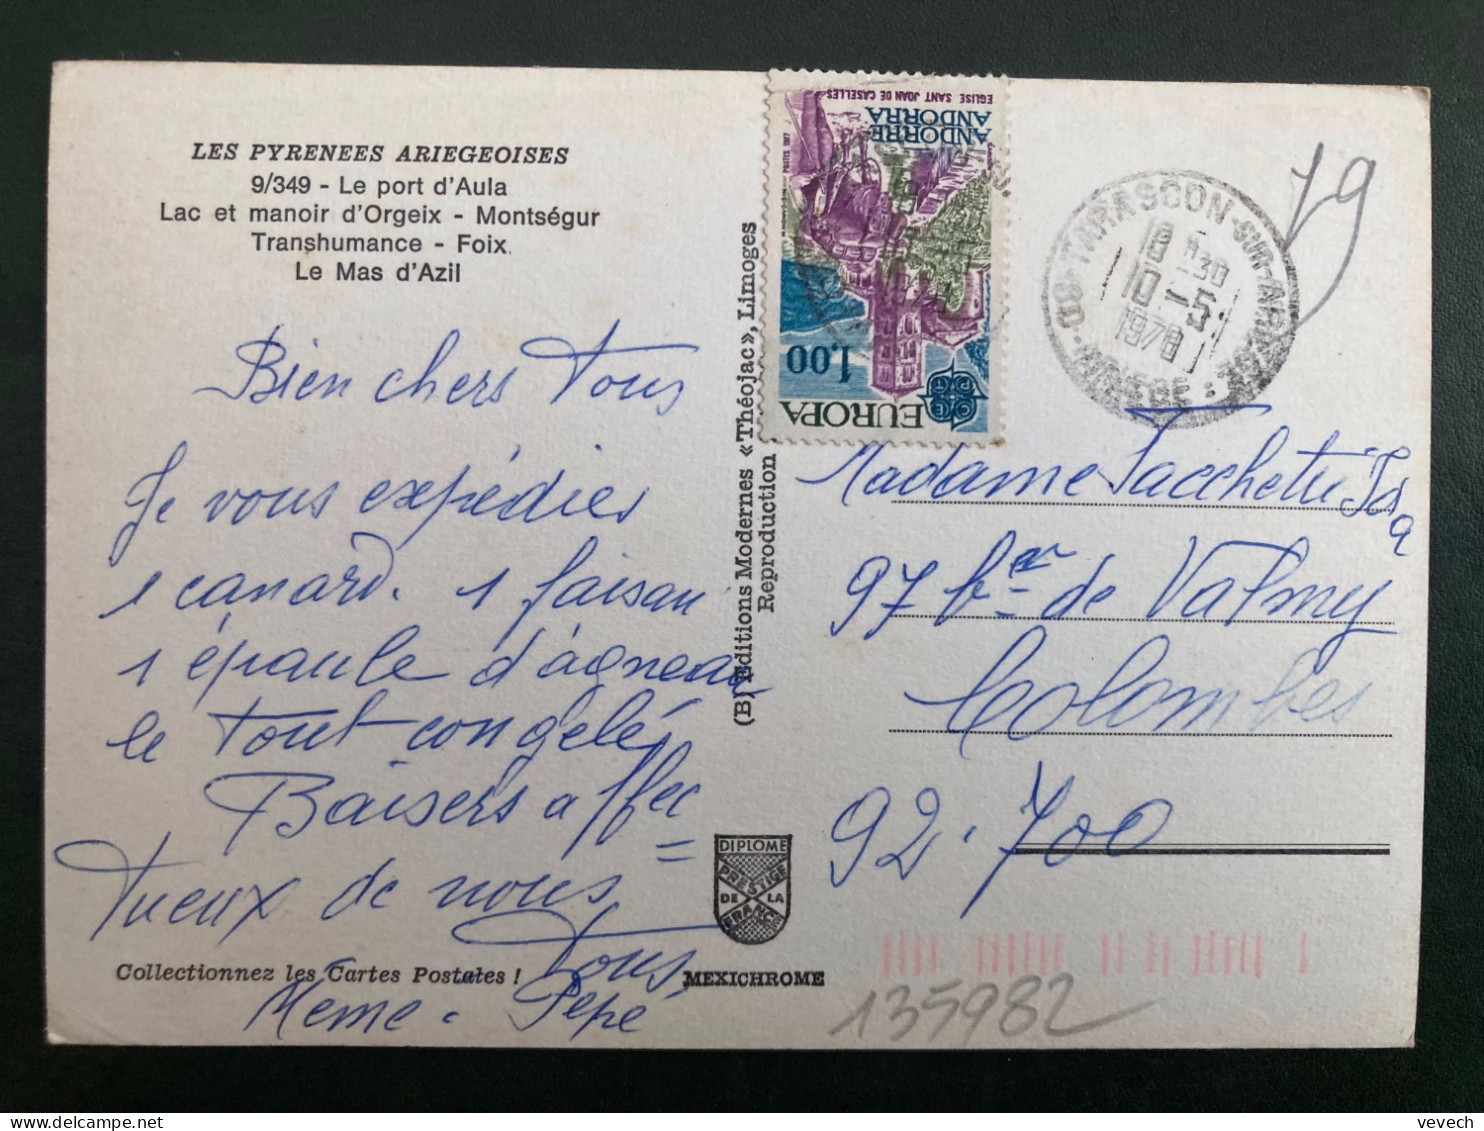 LES PYRENEES ARIEGEOISES
9/349 - Le port d'Aula
Lac et manoir d'Orgeix - Montségur
Transhumance - Foix
Le Mas d'Azil
Bien chers Tous
Je vous expédies
1 canard. 1 faisan
1 épaule d'agneau
le tout congelé
Baisers affec=
tueux de nous
Tous,
Meme. Pépé
Collectionnez les Cartes Postales !
MEXICHROME
DIPLOME
PRESTIGE
DE LA
FRANCE
(B) Editions Modernes «Théojac», Limoges
Reproduction
EGLISE SANT JOAN DE CASELLES
ANDORRE
ANDORRA
POSTES 1977
1,00
EUROPA
09-TARASCON-SUR-ARIEGE
18 H 30
10-5
1978
ARIEGE
79
Madame Sacchetti
97 de Valmy
Colombes
92.700
135982
vevech